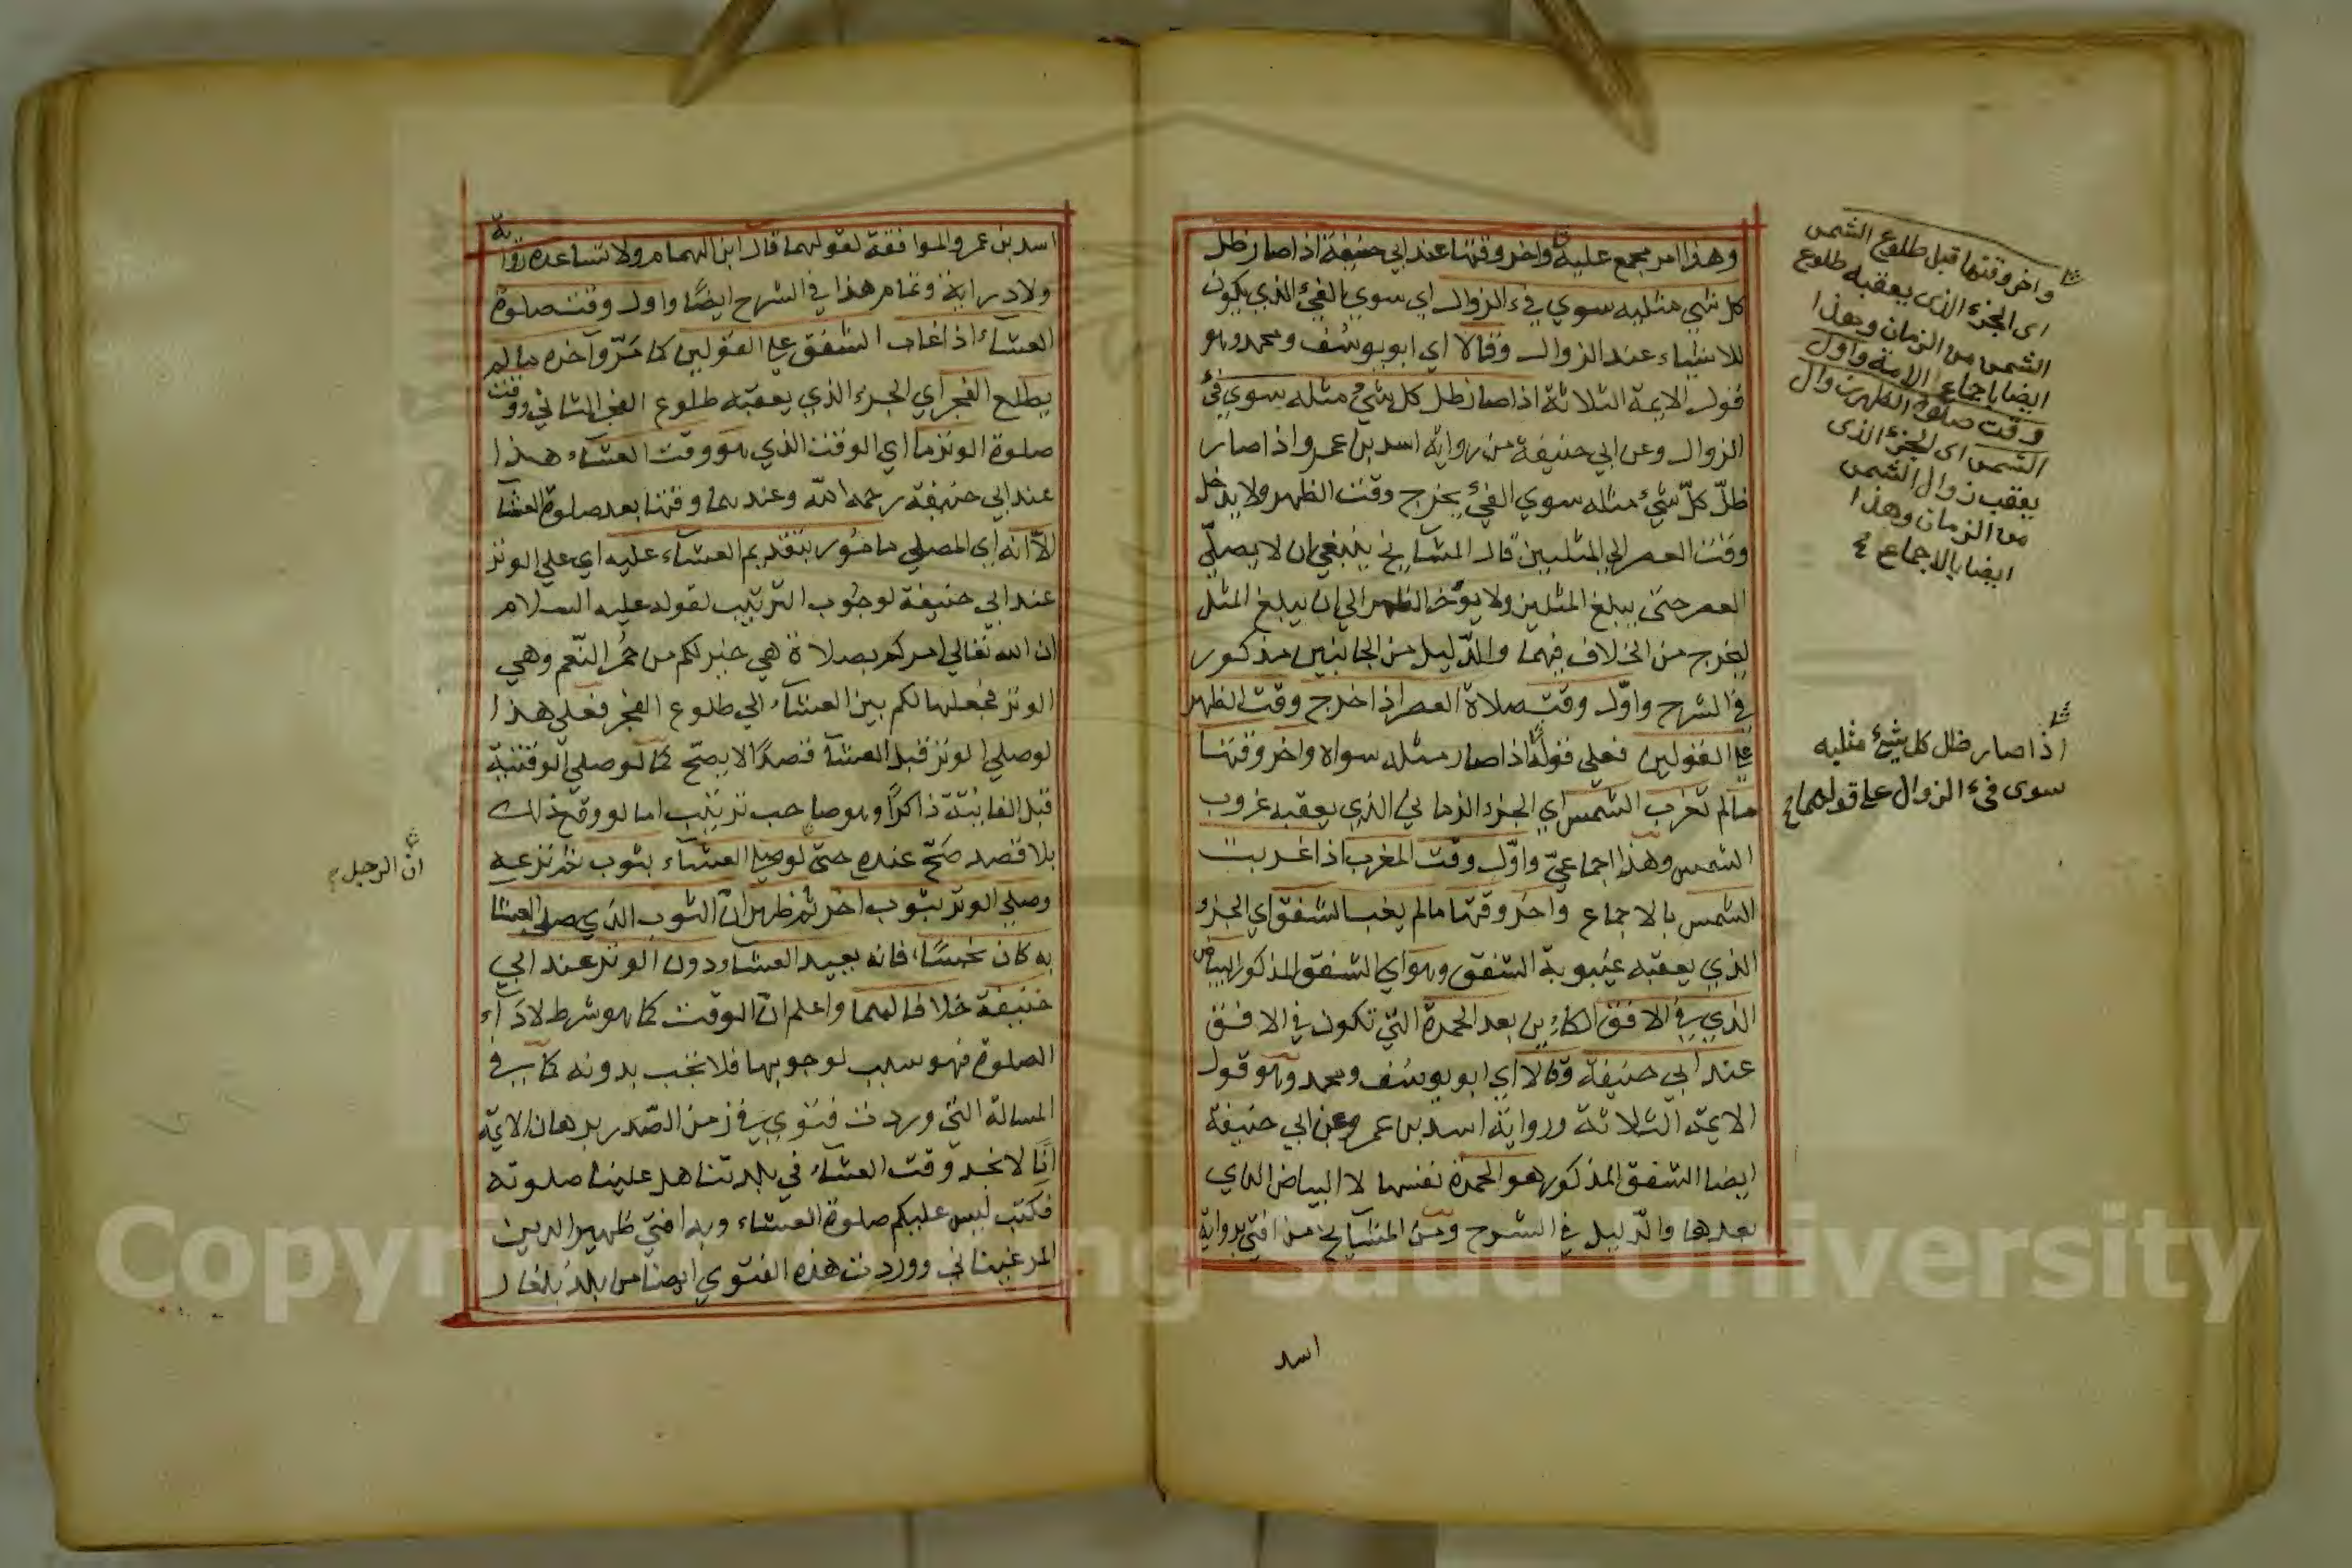 وهذا امر مجمع عليه واخر وقتها عند ابي حنيفة اذا صار ظل
كل شيء مثليه سوي فيء الزوال اي سوي الفيء الذي يكون
للاشياء عند الزوال وقالا اي ابو يوسُف ومحمد وهو
قول الايمة الثلاثة اذا صار ظل كل شيء مثله سوي فيء
الزوال وعن ابي حنيفة من رواية اسد بن عمرو اذا صار
ظلّ كلّ شيء مثله سوي الفيء يخرج وقت الظهر ولا يدخل
وقت العصر الي المثلين قال المشايخ ينبغي ان لا يصلّي
العصر حتى يبلغ المثلين ولا يؤخر الظهر الي ان يبلغ المثل
ليخرج من الخلاف فيهما والدّليل من الجانبين مذكور
في الشرح واوّل وقت صلاة العصر اذا خرج وقت الظهر
علي القولين فعلي قولهما اذا صار مثله سواه واخر وقتها
مالم تغرب الشمس اي الجزء الزماني الذي يعقبه غروب
الشمس وهذا اجماعيّ واوّل وقت المغرب اذا غربت
الشمس بالاجماع واخر وقتها مالم يغب الشفق اي الجزء
الذي يعقبه غيبوبة الشفق وهو اي الشفق المذكور البياض
الذي في الافق الكاين بعد الحمرة التي تكون في الافق
عند ابي حنيفة وقالا اي ابو يوسُف ومحمد وهو قول
الايمة الثلاثة ورواية اسد بن عمرو عن ابي حنيفة
ايضا الشفق المذكور هو الحمرة نفسها لا البياض الذي
بعدها والدّليل في الشرح ومن المشايخ من افتي برواية
اسد
واخر وقتها قبل طلوع الشمس
اى الجزء الذى يعقبه طلوع
الشمس من الزمان وهذا
ايضا باجماع الامة واول
وقت صلوة الظهر زوال
الشمس اى الجزء الذى
يعقب زوال الشمس
من الزمان وهذا
ايضا بالاجماع
اذا صار ظل كل شيء مثليه
سوى فيء الزوال على قولهما
اسد بن عمر والموافقة لقولهما قال ابن الهمام ولا تساعده رواية
ولا دراية وتمام هذا في الشرح ايضًا واول وقت صلوة
العشاء اذا غاب الشفق علي القولين كما مَرّ وآخره ما لم
يطلع الفجر اي الجزء الذي يعقبه طلوع الفجر الثاني ووقت
صلوة الوتر ما اي الوقت الذي هو وقت العشاء هذا
عند ابي حنيفة رحمه الله وعندهما وقتها بعد صلوة العشا
الّا انه اي المصلي مامُور بتقديم العشاء عليه اي علي الوتر
عند ابي حنيفة لوجُوب الترتيب لقوله عليه السلام
ان الله تعالي امركم بصلاة هي خير لكم من حُمْر النّعم وهي
الوتر فجعلها لكم بين العشاء الي طلوع الفجر فعلي هذا
لو صلي الوتر قبل العشآ قصدًا لا يصحّ كما لو صلي الوقتية
قبل الفايتة ذاكرًا وهو صاحب ترتيب اما لو وقع ذلك
بلا قصد صَحّ عنده حتى لو صلي العشاء بثوب ثم نزعه
وصلي الوتر بثوب اخر ثم ظهر انّ الثوب الذي صلي العشا
به كان نجسًا، فانه يعيد العشاء دون الوتر عند ابي
حنيفة خلافا لهما واعلم انّ الوقت كما هو شرط لادآء
الصلوة فهو سبب لوجوبها فلا تجب بدونه كما في
المسالة التي وردت فتوي في زمن الصّدر برهان الايمة
انّا لا نجد وقت العشاء في بلدتنا هل علينا صلوته
فكتب ليس عليكم صلوة العشاء وبه افتيّ ظهير الدين
المرغيناني ووردت هذه الفتوي ايضا من بلد بلغار
انّ الرجل
Copyright © King Saud University